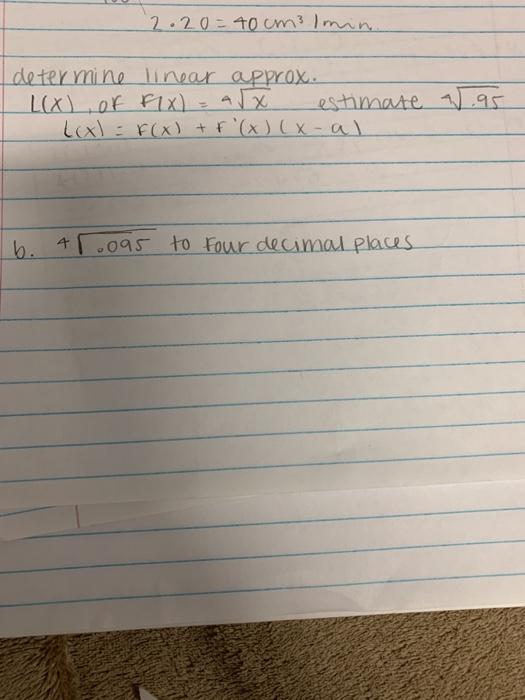 2·20 = 40 cm³ / min.
determine linear approx.
L(x), of F(x) = ⁴√x estimate ⁴√.95
L(x) = F(x) + F'(x)(x-a)
b. ⁴√.095 to four decimal places